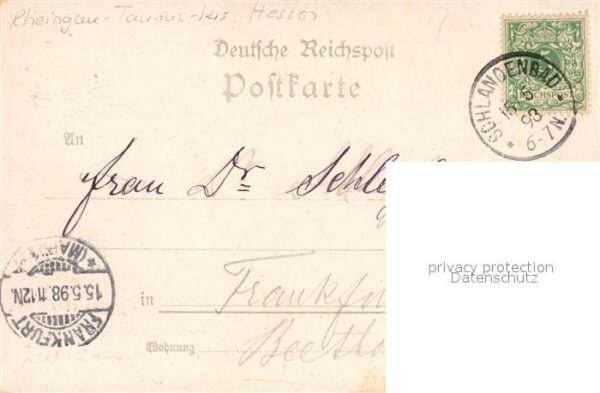 Rheingau-Taunus-Krs. Hessen
Deutsche Reichspost
Postkarte
SCHLANGENBAD
15 5
98
6-7N.
REICHSPOST
An
Frau Dr. Schle
privacy protection
Datenschutz
FRANKFURT (MAIN)
15.5.98.11-12N.
in Frankfu
Wohnung Beetho